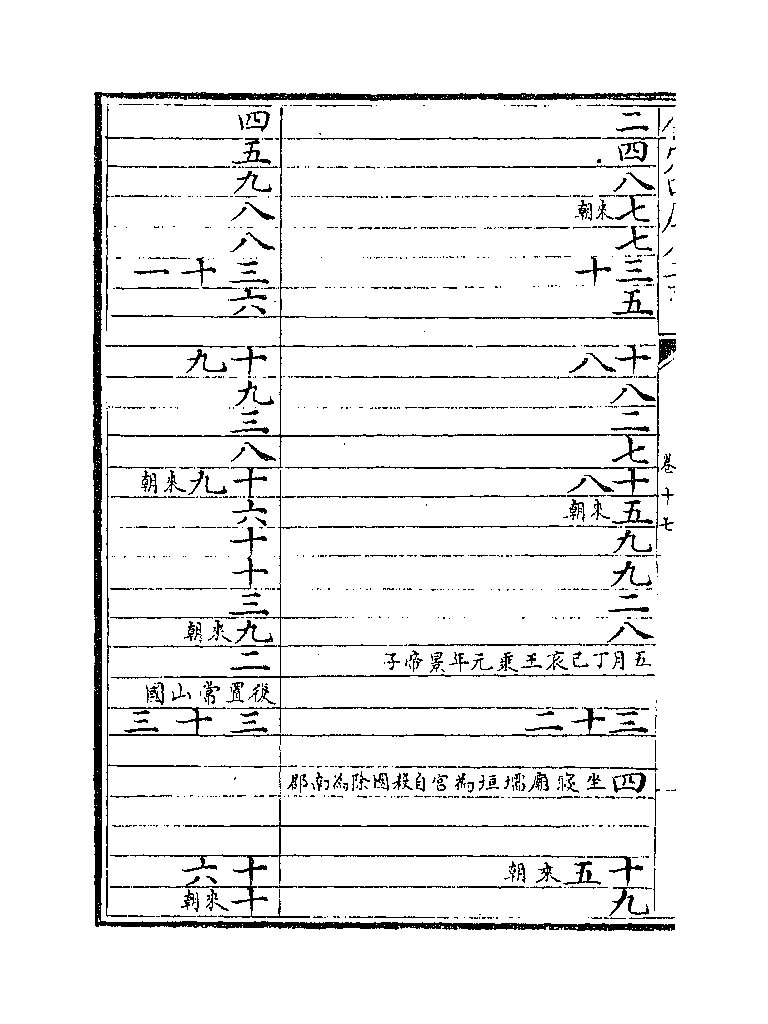 卷十七
二
四
八
七來朝
七
三十
五
十八
八
二
七
十八
五來朝
九
九
二
八
五月丁巳哀王乘元年景帝子
三十二
四坐侵廟壖垣為宮自殺國除為南郡
十五來朝
九
四
五
九
八
八
三十一
六
十九
九
三
八
十九來朝
六
十
十
三
九來朝
二
復置常山國
三十三
十六
十來朝